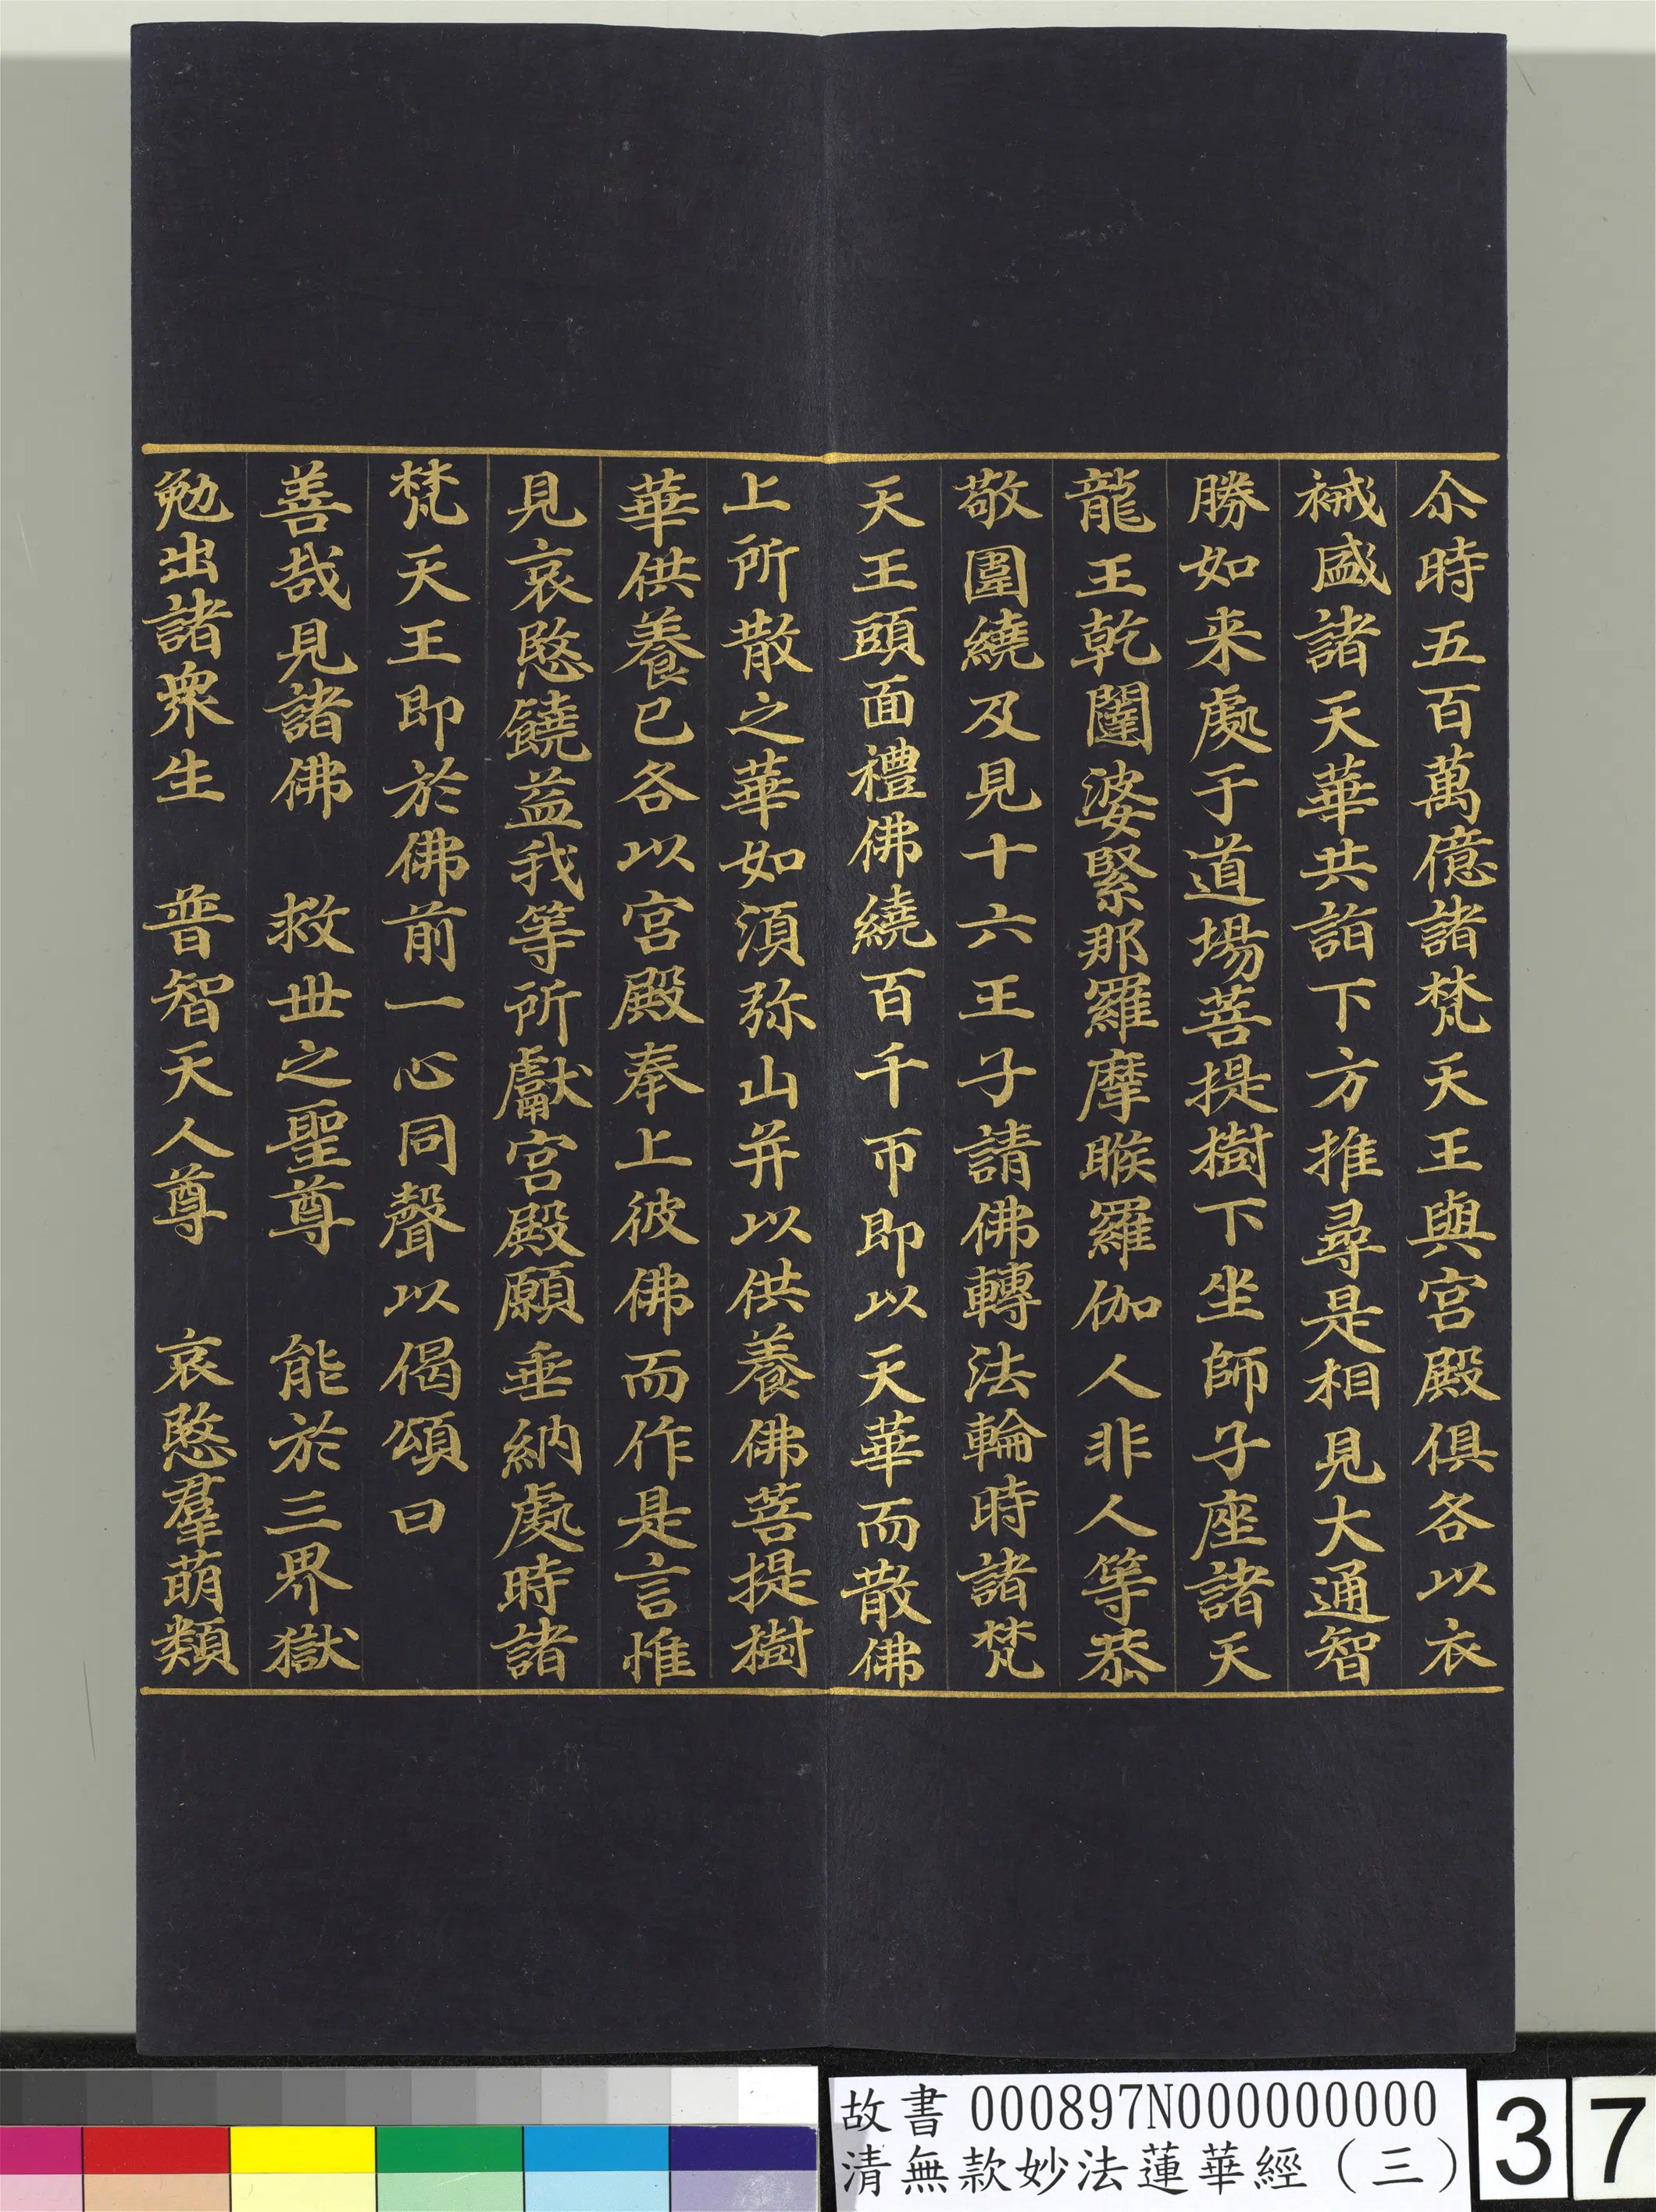 尒時五百萬億諸梵天王與宮殿俱各以衣
裓盛諸天華共詣下方推尋是相見大通智
勝如来處于道場菩提樹下坐師子座諸天
龍王乾闥婆緊那羅摩睺羅伽人非人等恭
敬圍繞及見十六王子請佛轉法輪時諸梵
天王頭面禮佛繞百千帀即以天華而散佛
上所散之華如湏弥山并以供養佛菩提樹
華供養已各以宮殿奉上彼佛而作是言惟
見哀愍饒益我等所獻宮殿願垂納處時諸
梵天王即於佛前一心同聲以偈頌曰
善哉見諸佛　救世之聖尊　能於三界獄
勉出諸衆生　普智天人尊　哀愍羣萌類
故書 000897N000000000
清無款妙法蓮華經（三）
37